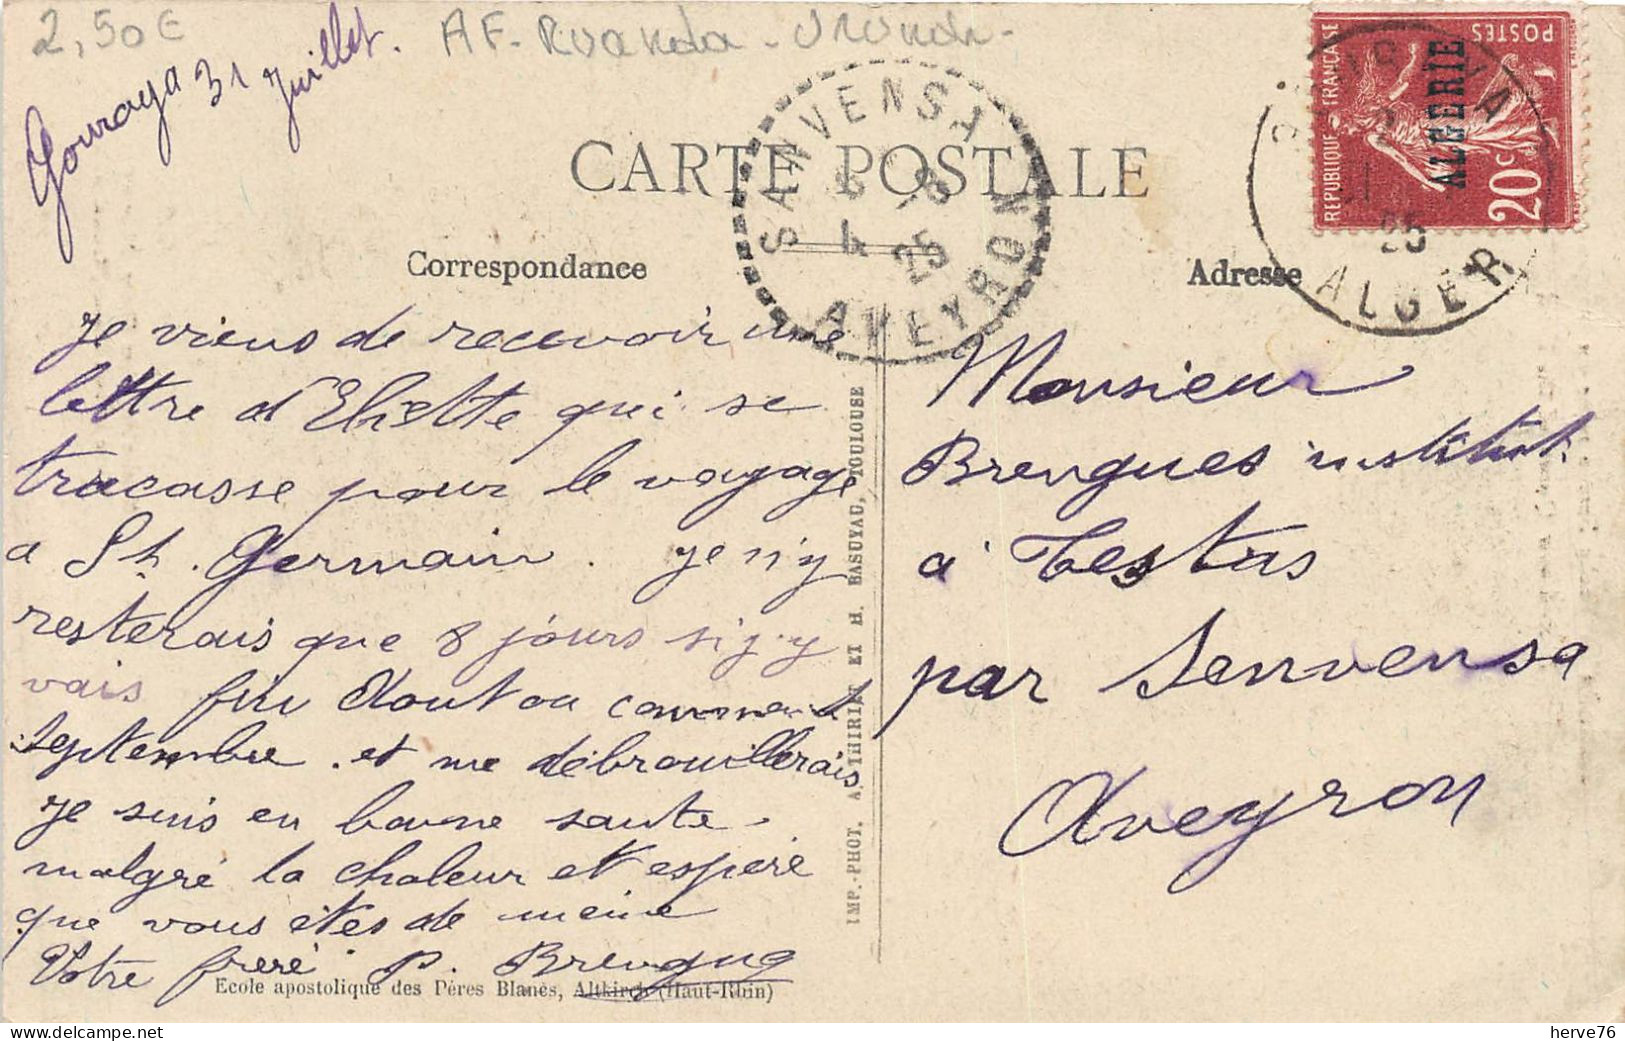 2,50€
AF-Ruanda-Urundi-
Gouraya 31 Juillet.
CARTE POSTALE
SANVENSA
4 25
AVEYRON
REPUBLIQUE FRANÇAISE
POSTES
ALGERIE
20c
25
ALGER
Correspondance
Adresse
Je viens de recevoir une
lettre d'Eliette qui se
tracasse pour le voyage
a St. Germain. je n'y
resterais que 8 jours si j'y
vais fin Aout ou comment
septembre. et me débrouillerais
Je suis en bonne sante
malgré la chaleur et espère
que vous êtes de meme
Votre frere P. Brengues
Monsieur
Brengues institut.
à Testas
par Senvensa
Aveyron
IMP.-PHOT. A. THIRIAT ET H. BASUYAU, TOULOUSE
Ecole apostolique des Pères Blancs, Altkirch (Haut-Rhin)
herve76